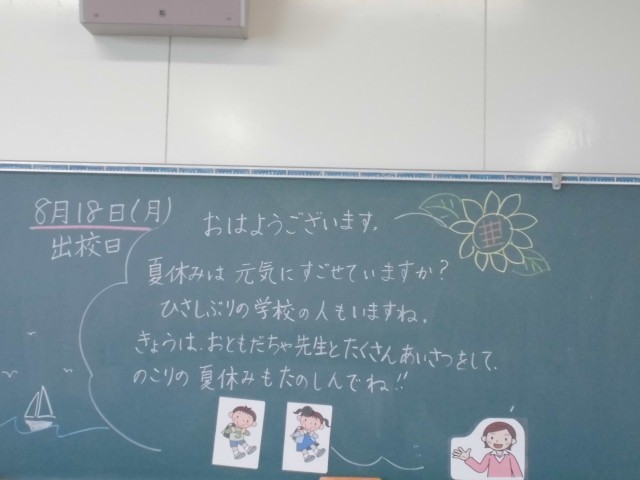 8月18日(月)
出校日
おはようございます。
夏休みは 元気にすごせていますか?
ひさしぶりの学校の人もいますね。
きょうは、おともだちや先生とたくさんあいさつをして、
のこりの 夏休みもたのしんでね!!